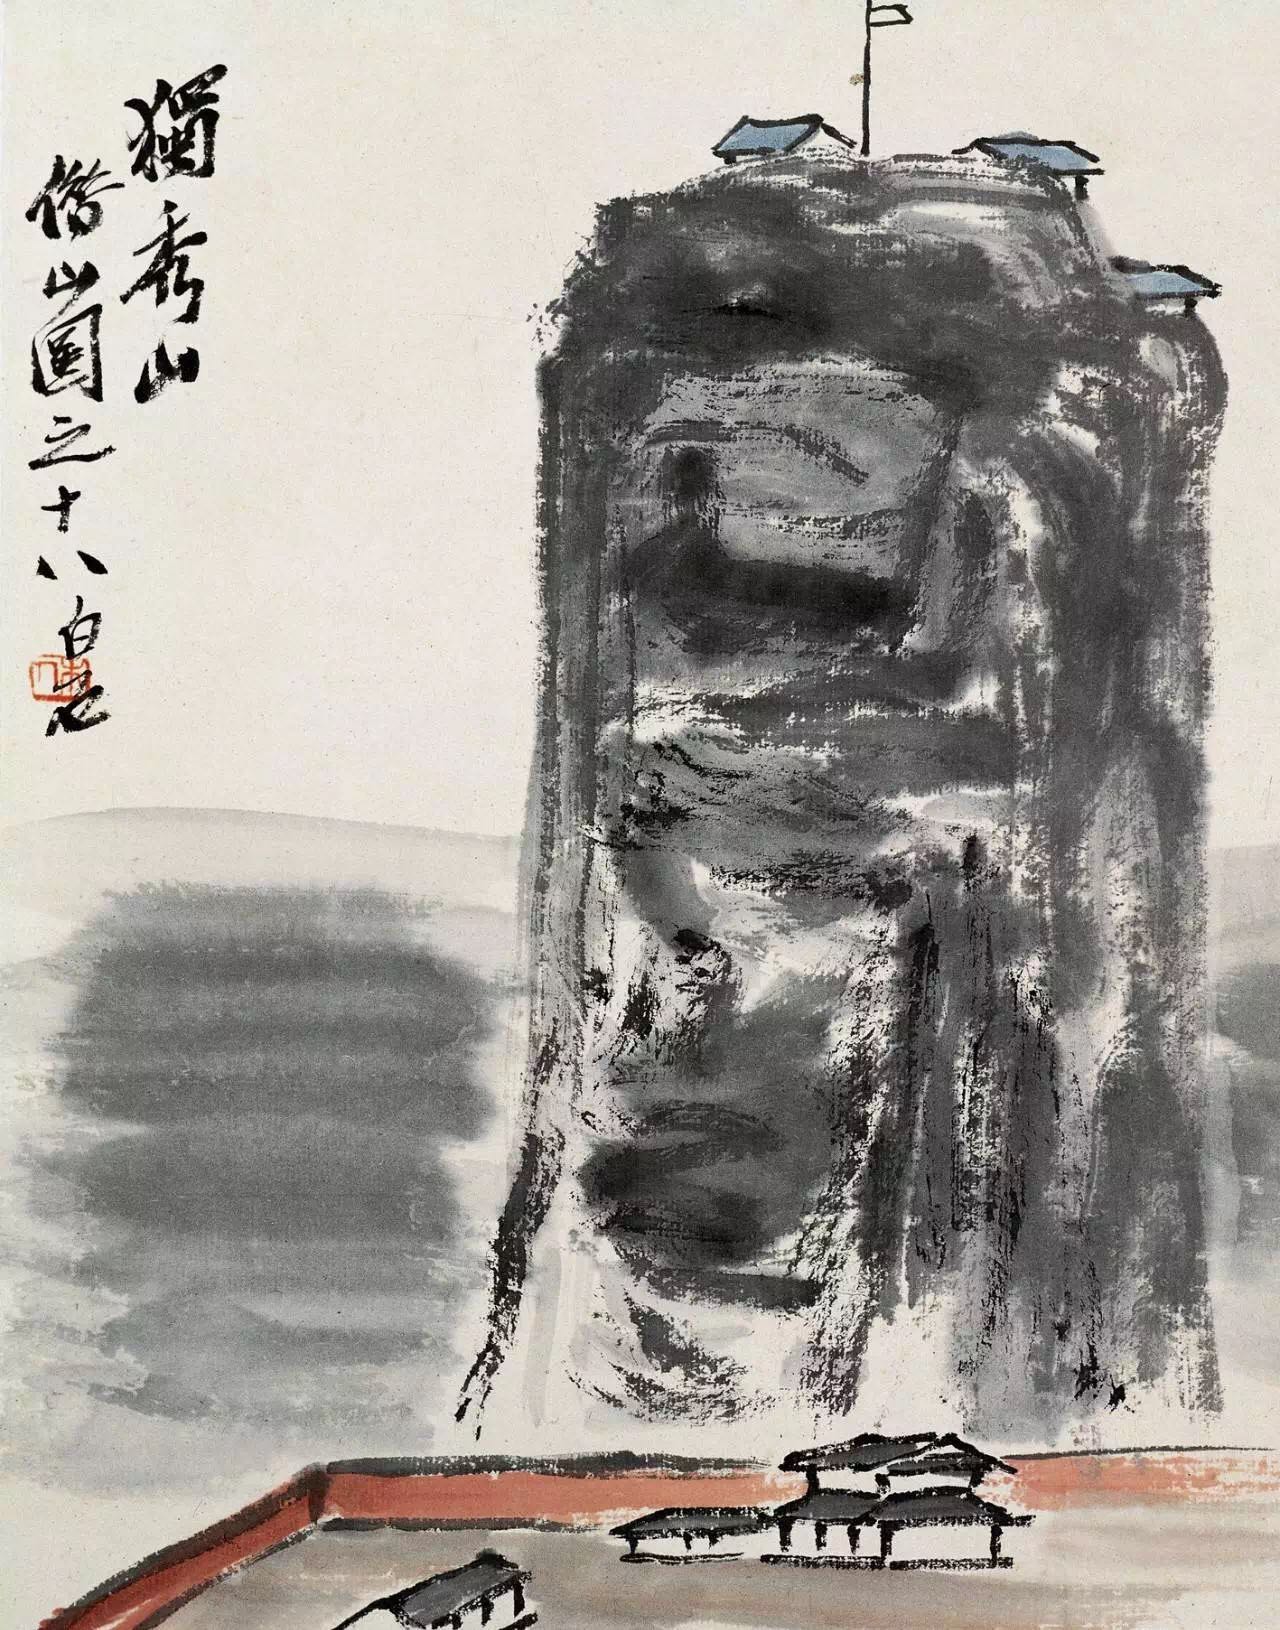 獨秀山
借山圖之十八白石
木人